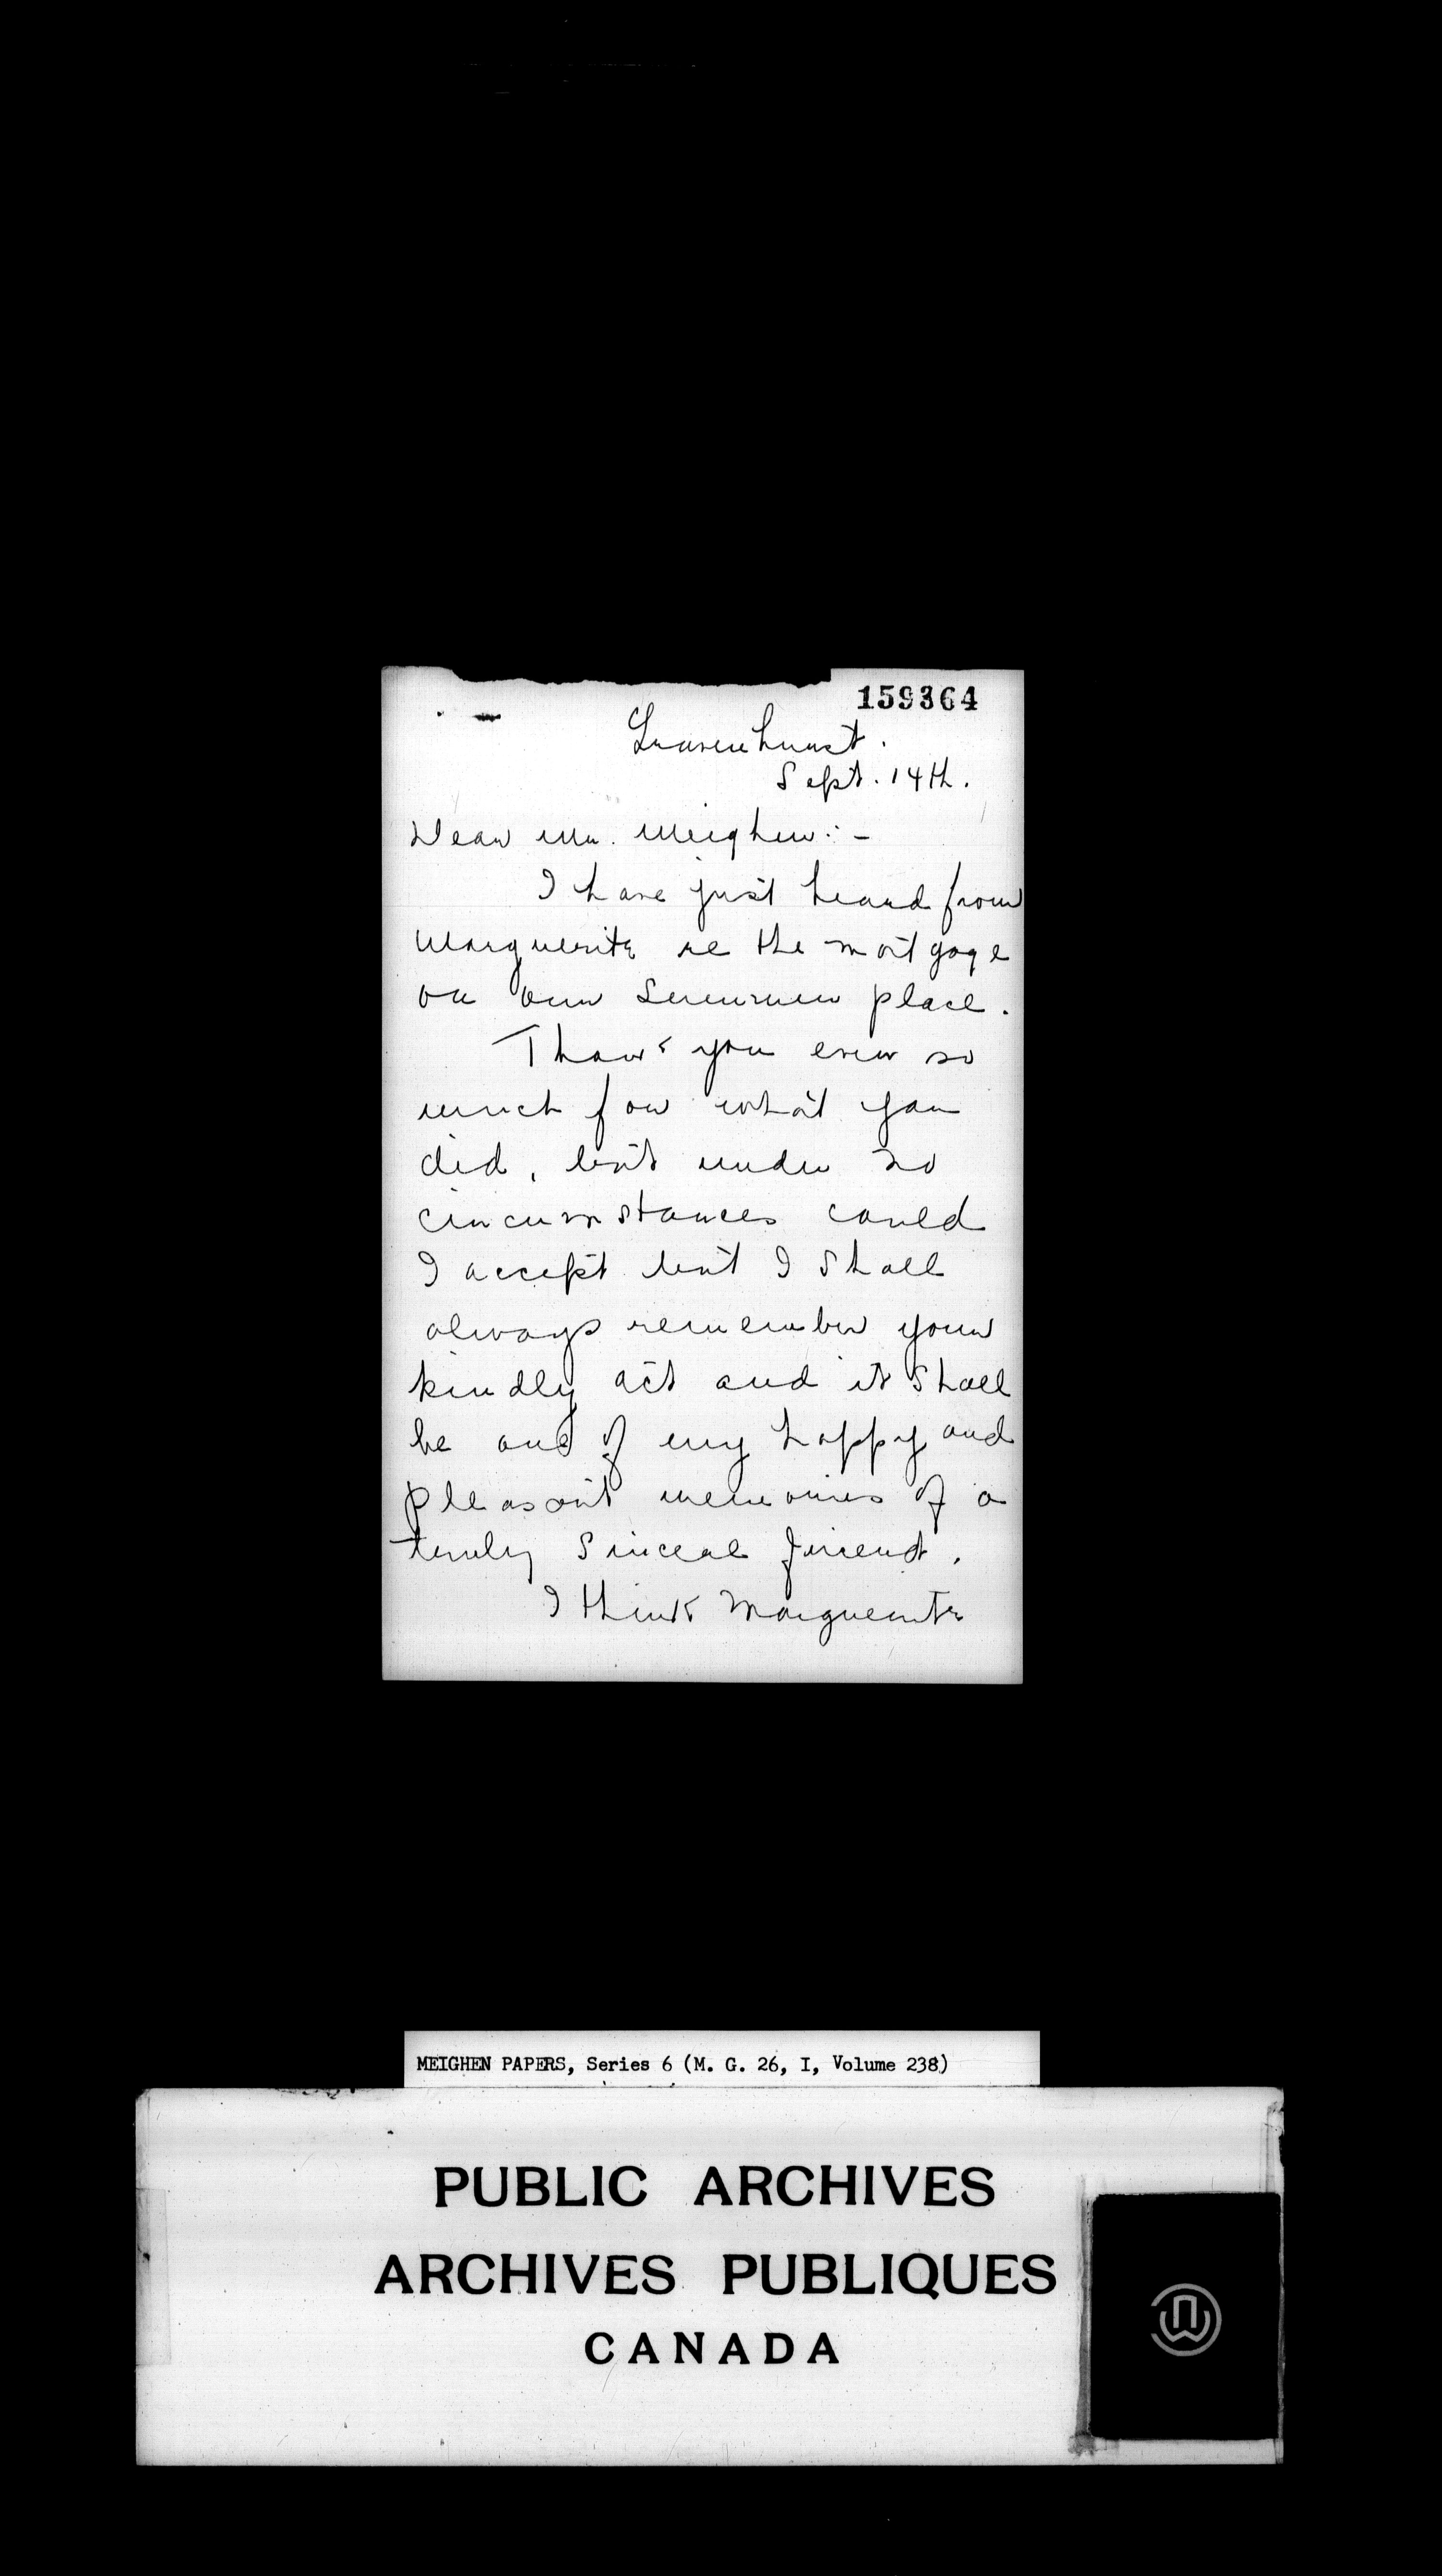 159364
Gravenhurst.
Sept. 14th.
Dear Mr. Meighen: -
I have just heard from
Marguerite re the mortgage
on our Summer place.
Thank you ever so
much for what you
did, but under no
circumstances could
I accept but I shall
always remember your
kindly act and it shall
be one of my happy and
pleasant memories of a
truly sincere friend.
I think Marguerite
MEIGHEN PAPERS, Series 6 (M. G. 26, I, Volume 238)
PUBLIC ARCHIVES
ARCHIVES PUBLIQUES
CANADA